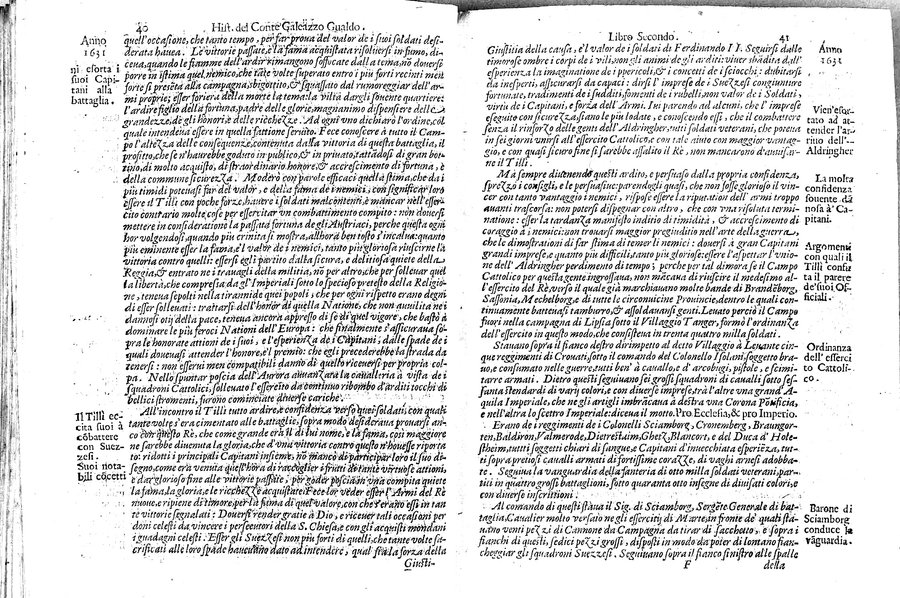 40 Hist. del Conte Galeazzo Gualdo.
Anno
1631
ni esorta i
suoi Capi
tani alla
battaglia.
quell'occasione, che tanto tempo, per far prova del valor de i suoi soldati desi-
derata havea. Le vittorie passate, e la fama acquistata risolversi in fumo, di-
ceva, quando le fiamme dell'ardir rimangono soffocate dalla tema, no doversi
porre in istima quel nemico, che tate volte superato entro i più forti recinti men
forte si presēta alla campagna, sbigottito, & squassato dal rumoreggiar dell'ar
mi proprie; esser foriera della morte la tema, la viltà dargli sovente quartiere:
l'ardire figlio della fortuna, padre delle glorie, magnanimo dispositore delle
grandezze, de gli honori, e delle richezze. Ad ogni uno dichiarò l'ordine, col
quale intendeva esser in quella fattione servito. Fece conoscere à tutto il Cam-
po l'altezza delle conseguenze, contenuta dalla vittoria di questa battaglia, il
profitto, che se n'haurebbe goduto in publico, & in privato, tasādosi di gran bot-
tino, di molto acquisto, di straordinario honore, & accrescimento di fortuna, e
della commune sicurezza. Moderò con parole efficaci quella stima, che da i
più timidi potevasi far del valor, e della fama de i nemici, con significar loro
essere il Tilli con poche forze, havere i soldati malcontenti, à mancar nell'eser-
cito contrario molte cose per essercitar un combattimento compito: non doversi
mettere in consideratione la passata fortuna de gli Austriaci, perche questa ogn
hor volgendosi, quando più crinita si mostra, allhora ben tosto s'incalva: quanto
più eminente esser la fama, e'l valor de i nemici, tanto più gloriosa riuscirne la
vittoria contro quelli: essersi egli partito dalla sicura, e delitiosa quiete della
Reggia, & entrato ne i travagli della militia, nō per altro, che per sollevar quel
la libertà, che compresa da gl'Imperiali sotto lo specioso pretesto della Religio-
ne, teneva sepolti nella tirannide quei popoli, che per ogni rispetto erano degni
di esser sollevati: trattarsi dell'honor di quella Natione, che non auvilita ne i
dannosi otij della pace, teneva ancora appresso di se di quel vigore, che bastò à
dominare le più feroci Nationi dell'Europa: che finalmente s'assicurava so-
pra le honorate attioni de i suoi, e l'esperienza de i Capitani; dalle spade de i
quali doveasi attender l'honore, e'l premio: che egli precederebbe la strada da
tenersi: non essersi men compatibili danno di quello ricevere per propria col
pa. Nello spuntar poscia dell'Aurora avanzata la cavalleria à vista de i
Squadroni Cattolici, sollevato l'essercito da continuo ribombo d'arditi tocchi di
bellici stromenti, furono cominciate diverse cariche.
Il Tilli ec-
cita suoi à
cōbattere
con Suez-
zesi.
Suoi nota-
bili cōcetti
All'incontro il Tilli tutto ardire, e confidenza verso quei soldati, con quali
tante volte s'era cimentato alle battaglie, sopra modo desiderava provarsi an-
co con questo Rè, che come grande era il di lui nome, e la fama, così maggiore
ne sarebbe divenuta la gloria d'una vittoria contro questo n'hovesse riporta-
to: ridotti i principali Capitani insieme, no mancò di participar loro il suo di-
segno, come era venuta quell'hora di raccoglier i frutti di tante virtuose attioni,
e dar glorioso fine alle vittorie passate, per poder poscia in una compita quiete
la fama, la gloria, e le ricchezze acquistate. Fece lor veder esser l'Armi del Rè
nuove, e ripiene di timore, per la fama di quel valore, con che s'erano essi in tan
te vittorie segnalati: Doversi render gratie à Dio, e ricever tali occasioni per
doni celesti da vincere i persecutori della S. Chiesa, e con gli acquisti mondani
i guadagni celesti. Esser gli Suezzesi non più forti di quelli, che tante volte sa-
crificati alle loro spade haveano dato ad intendere, qual sia la forza della
Giusti-
Libro Secondo. 41
Anno
1631
Giustitia della causa, e'l valor de i soldati di Ferdinando II. Seguirsi dalle
timorose ombre i corpi de i vili, non gli animi de gli arditi; viver sbādita dall'
esperienza la imaginatione de i ppericoli, & i concetti de i sciocchi: dubitarsi
da inesperti, assicurarsi da capaci: dirsi l'imprese de i Suezzesi continuate
fortunate, tradimenti de i sudditi, fomenti de i rubelli, non valor de i Soldati,
virtù de i Capitani, e forza dell'Armi. Lui parendo ad alcuni, che l'imprese
eseguito con sicurezza, siano le più lodate, e conoscendo essi, che il combattere
senza il rinforzo delle genti dell'Aldringher, tutti soldati veterani, che poteva
in sei giorni unirsi all'essercito Cattolico, e con tale aiuto con maggior vantag-
gio, e con quasi sicuro fine si sarebbe assalito il Rè, non mancarono d'avisar-
ne il Tilli.
Vien'esor-
tato ad at-
tender l'ar-
rivo dell'-
Aldringher
Mà sempre divenendo questi ardito, e persuaso dalla propria confidenza,
sprezzò i consigli, e le persuasive: parendogli quasi, che non fosse glorioso il vin-
cer con tanto vantaggio i nemici, rispose essere la riputation dell'armi troppo
avanti trascorsa: non potersi dispegnar con altro, che con una risoluta termi-
natione: esser la tardanza manifesto inditio di timidità, & accrescimento di
coraggio à i nemici: non trovarsi maggior pregiuditio nell'arte della guerra,
che le dimostrationi di far stima di temerli nemici: doversi à gran Capitani
grandi imprese, e quanto più difficili, tanto più gloriose: essere l'aspettar l'unio-
ne dell'Aldringher perdimento di tempo; perche per tal dimora se il Campo
Cattolico per questa gente ingrossava, non mācava di riuscire il medesimo al-
l'essercito del Rè, verso il quale già marchiavano molte bande di Brandēborg,
Sassonia, Mechelborg, e di tutte le circonvicine Provincie, dentro le quali con-
tinuamente battevasi tamburro, & assoldavansi genti. Levato perciò il Campo
fuori nella campagna di Lipsia sotto il Villaggio Tanger, formò l'ordinanza
dell'essercito in questo modo, che consisteva in trenta quattro mila soldati.
La molta
confidenza
sovente da
nosa à Ca-
pitani.
Argomenti
con quali il
Tilli confu
ta il parere
de'suoi Of-
ficiali.
Stavano sopra il fianco destro dirimpetto al detto Villaggio à Levante cin-
que reggimenti di Crovati, sotto il comando del Colonello Isolani, soggetto bra-
vo, e consumato nelle guerre, tutti ben' à cavallo, e d'arcobugi, pistole, e scimi-
tarre armati. Dietro questi seguivano sei grossi squadroni di cavalli sotto ses-
santa stendardi di vary colori, e con diverse imprese, trà l'altre una grand'A-
quila Imperiale, che ne gli artigli imbracciava à destra una Corona Pōtificia,
e nell'altra lo scettro Imperiale: diceva il motto. Pro Ecclesia, & pro Imperio.
Ordinanza
dell' essercì
to Cattoli-
co.
Erano de i reggimenti de i Colonelli Sciamborg, Cronemberg, Braungor-
ten, Baldiron, Valmerode, Dietrestaim, Ghetz, Blancort, e del Duca d'Hole-
stheim, tutti soggetti chiari di sangue, e Capitani d'invecchiata esperiēza, tut-
ti sopra pretiosi cavalli armati di fortissime corazze, di vaghi arnesi adobba-
te. Seguiva la vanguardia della fanteria di otto milla soldati veterani, par-
titi in quattro grossi battaglioni, sotto quaranta otto insegne di divisati colori, e
con diverse inscrittioni.
Al comando di questi stava il Sig. di Sciamborg, Sergēte Generale di bat-
taglia, Cavallier molto versato negli essercitij di Marte, in fronte de' quali sta-
vano venti pezzi di Cannone da campagna da tirar di sacchetto, e sopra i
fianchi di questi, sedici pezzi grossi, disposti in modo da poter di lontano fian-
cheggiar gli squadroni Suezzesi. Seguivano sopra il fianco sinistro alle spalle
Barone di
Sciamborg
conduce la
vāguardia.
F della